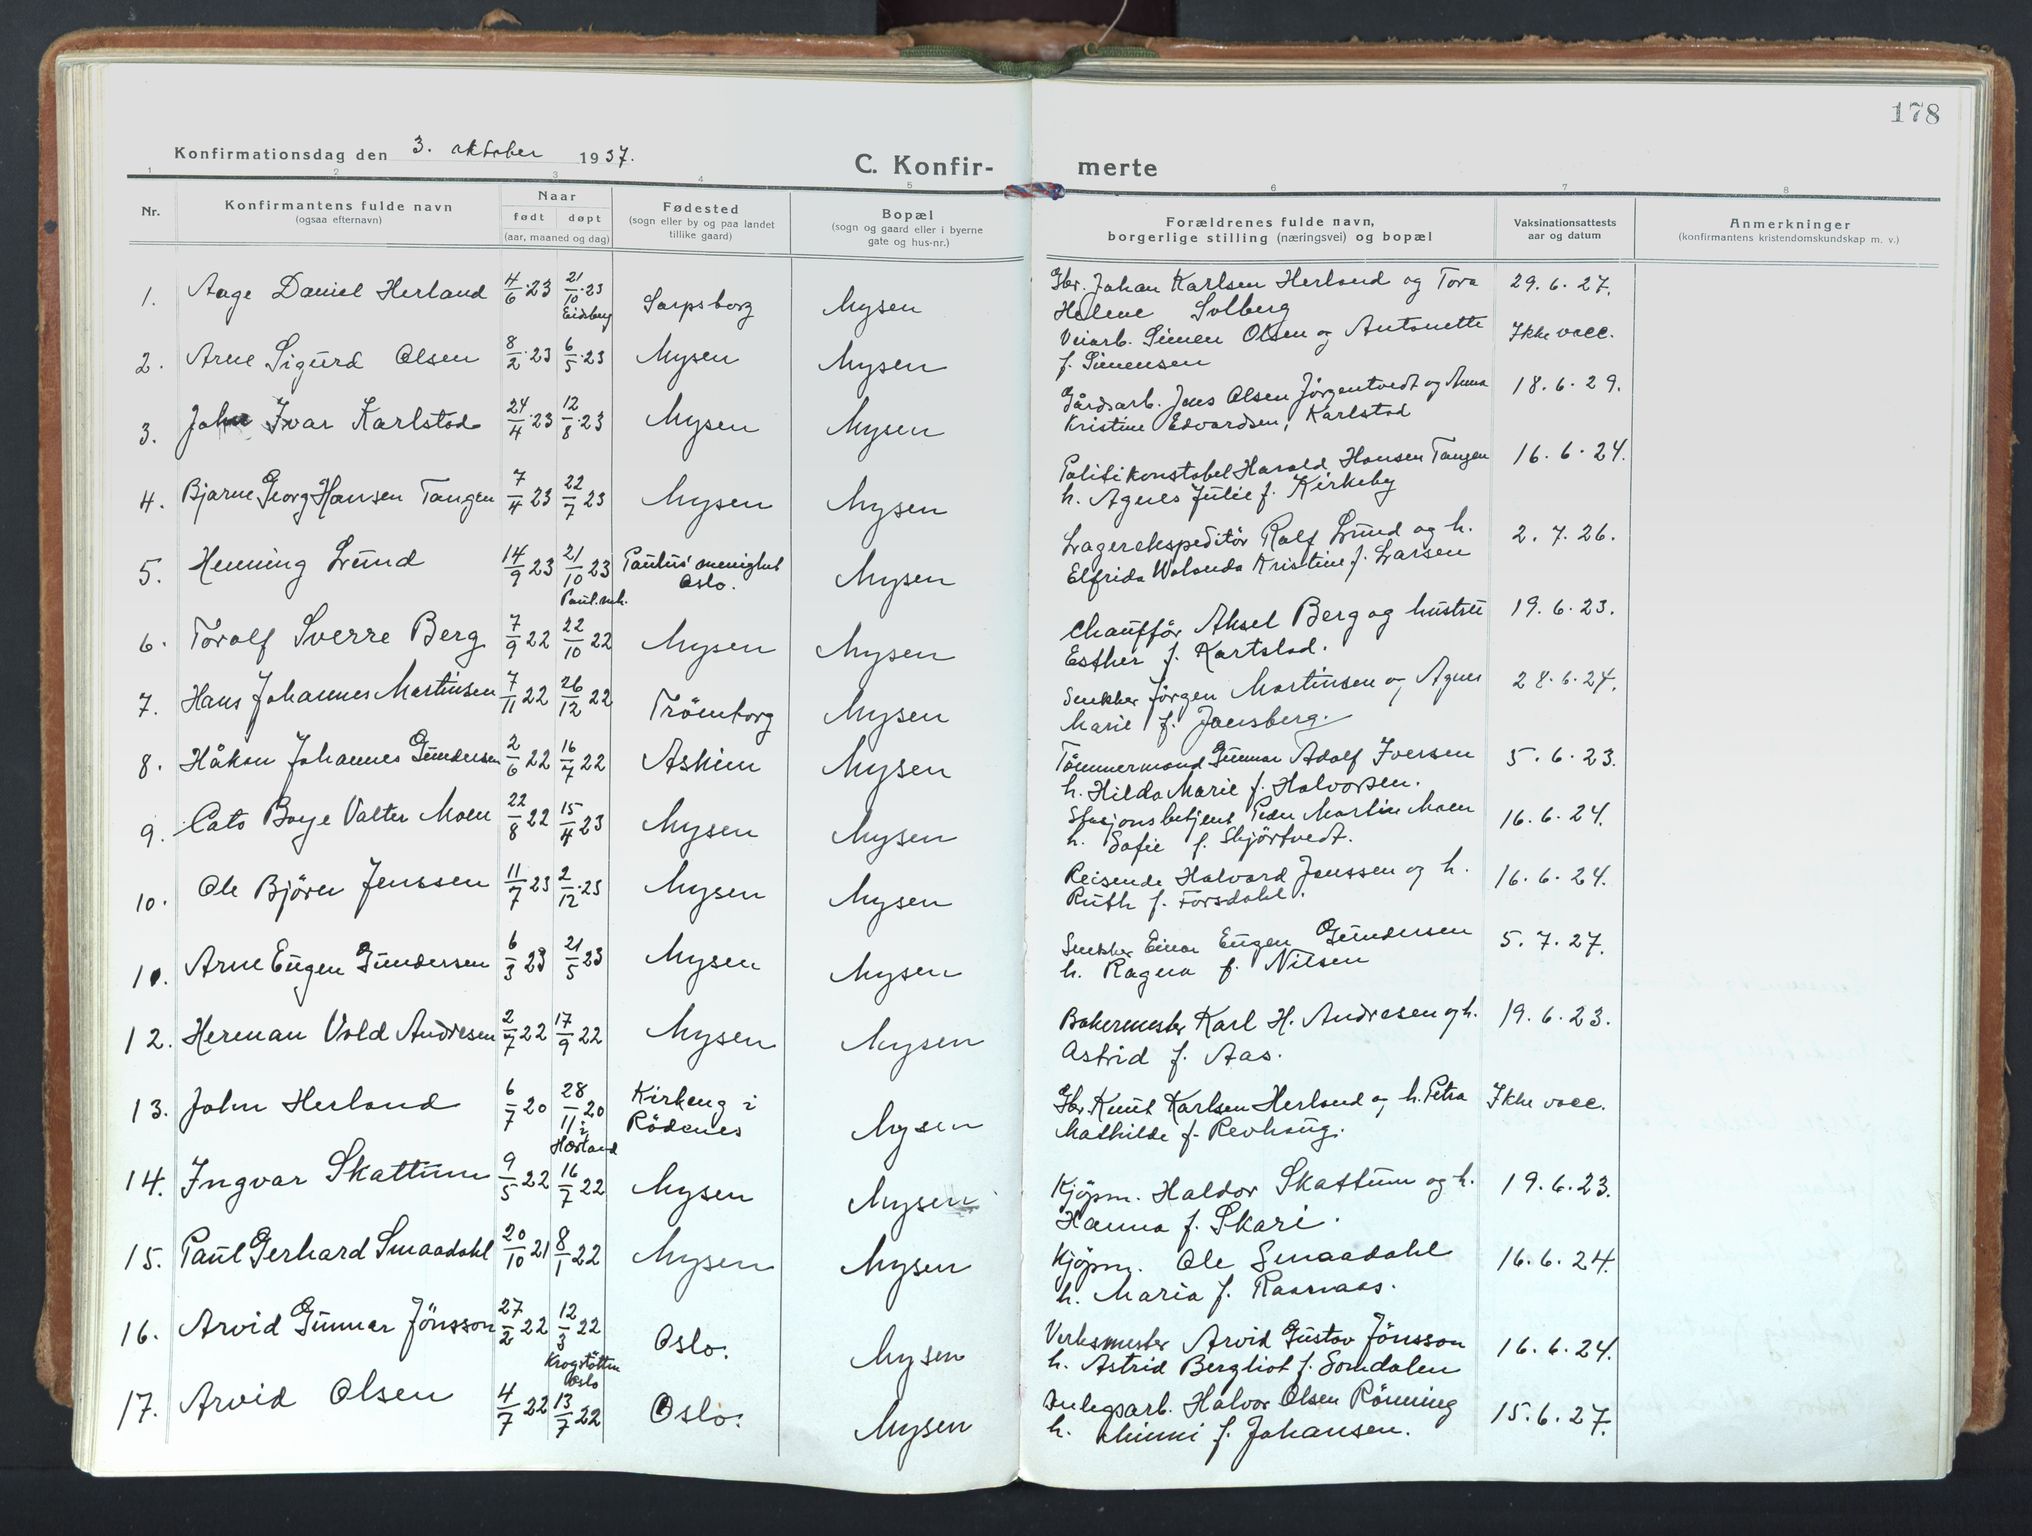 178
Konfirmationsdag den 3. oktober 1937.
C. Konfir- merte
1 2 3 4 5 6 7 8
Nr. Konfirmantens fulde navn (ogsaa efternavn) Naar født døpt (aar, maaned og dag) Fødested (sogn eller by og paa landet tillike gaard) Bopæl (sogn og gaard eller i byerne gate og hus-nr.) Forældrenes fulde navn, borgerlige stilling (næringsvei) og bopæl Vaksinationsattests aar og datum Anmerkninger (konfirmantens kristendomskundskap m. v.)
1. Aage Daniel Herland 4/6.23 21/10.23 Eidsberg Sarpsborg Mysen Gbr. Johan Karlsen Herland og Tora 29.6.27.
Helene Solberg
2. Arne Sigurd Olsen 8/2.23 6/5.23 Mysen Mysen Veiarb. Simen Olsen og Antonette Ikke vacc.
f. Simensen
3. John Ivar Karlstad 24/4.23 12/8.23 Mysen Mysen Gårdsarb. Jens Olsen Jørgentvedt og Anna 18.6.29.
Kristine Edvardsen, Karlstad
4. Bjarne Georg Hansen Tangen 7/4 23 22/7 23 Mysen Mysen Politikonstabel Harald Hansen Tangen 16.6.24.
h. Agnes Julie f. Kirkeby
5. Henning Lund 14/9 23 21/10 23 Paul. mh. Paulus' menighet Oslo. Mysen Lagerekspeditør Ralf Lund og h. 2.7.26.
Elfrida Wolanda Kristine f. Larsen
6. Toralf Sverre Berg 7/9 22 22/10 22 Mysen Mysen Chauffør Aksel Berg og hustru 19.6.23.
Esther f. Karlstad.
7. Hans Johannes Martinsen 7/11 22 26/12 22 Trömborg Mysen Snekker Jørgen Martinsen og Agnes 28.6.24.
Marie f. Jansberg.
8. Håkon Johannes Gundersen 2/6 22 16/7 22 Askim Mysen Tömmermand Gunnar Adolf Iversen 5.6.23.
h. Hilda Marie f. Halvorsen.
9. Cato Boye Valter Moen 22/8 22 15/4 23 Mysen Mysen Stasjonsbetjent Peder Martin Moen 16.6.24.
h. Sofie f. Skjörtvedt.
10. Ole Björn Jenssen 11/7 23 2/12.23 Mysen Mysen Reisende Halvard Jenssen og h. 16.6.24.
Ruth f. Forsdahl.
11. Arne Eugen Gundersen 6/3 23 21/5 23 Mysen Mysen Snekker Einar Eugen Gundersen 5.7.27.
h. Ragna f. Nilsen
12. Herman Vold Andresen 2/7 22 17/9 22 Mysen Mysen Bakermester Karl H. Andresen og h. 19.6.23.
Astrid f. Aas.
13. John Herland 6/7 20 28/11 20 i Hærland Kirkeng i Rödenes Mysen Gbr Knut Karlsen Herland og h. Petra Ikke vacc.
Mathilde f. Revhaug.
14. Ingvar Skattum 9/5 22 16/7 22 Mysen Mysen Kjøpm. Haldor Skattum og h. 19.6.23.
Hanna f. Skari.
15. Paul Gerhard Smaadahl 20/10 21 8/1 22 Mysen Mysen Kjøpm. Ole Smaadahl 16.6.24.
h. Maria f. Raanaas.
16. Arvid Gunnar Jönsson 27/2 22 12/3 22 Oslo. Mysen Verksmester Arvid Gustav Jönsson 16.6.24.
h. Astrid Bergliot f. Somdalen
17. Arvid Olsen 4/7 22 Oslo 13/7 22 Oslo. Mysen Anlegsarb. Halvor Olsen Rönning 15.6.27.
h. Minni f. Johansen.